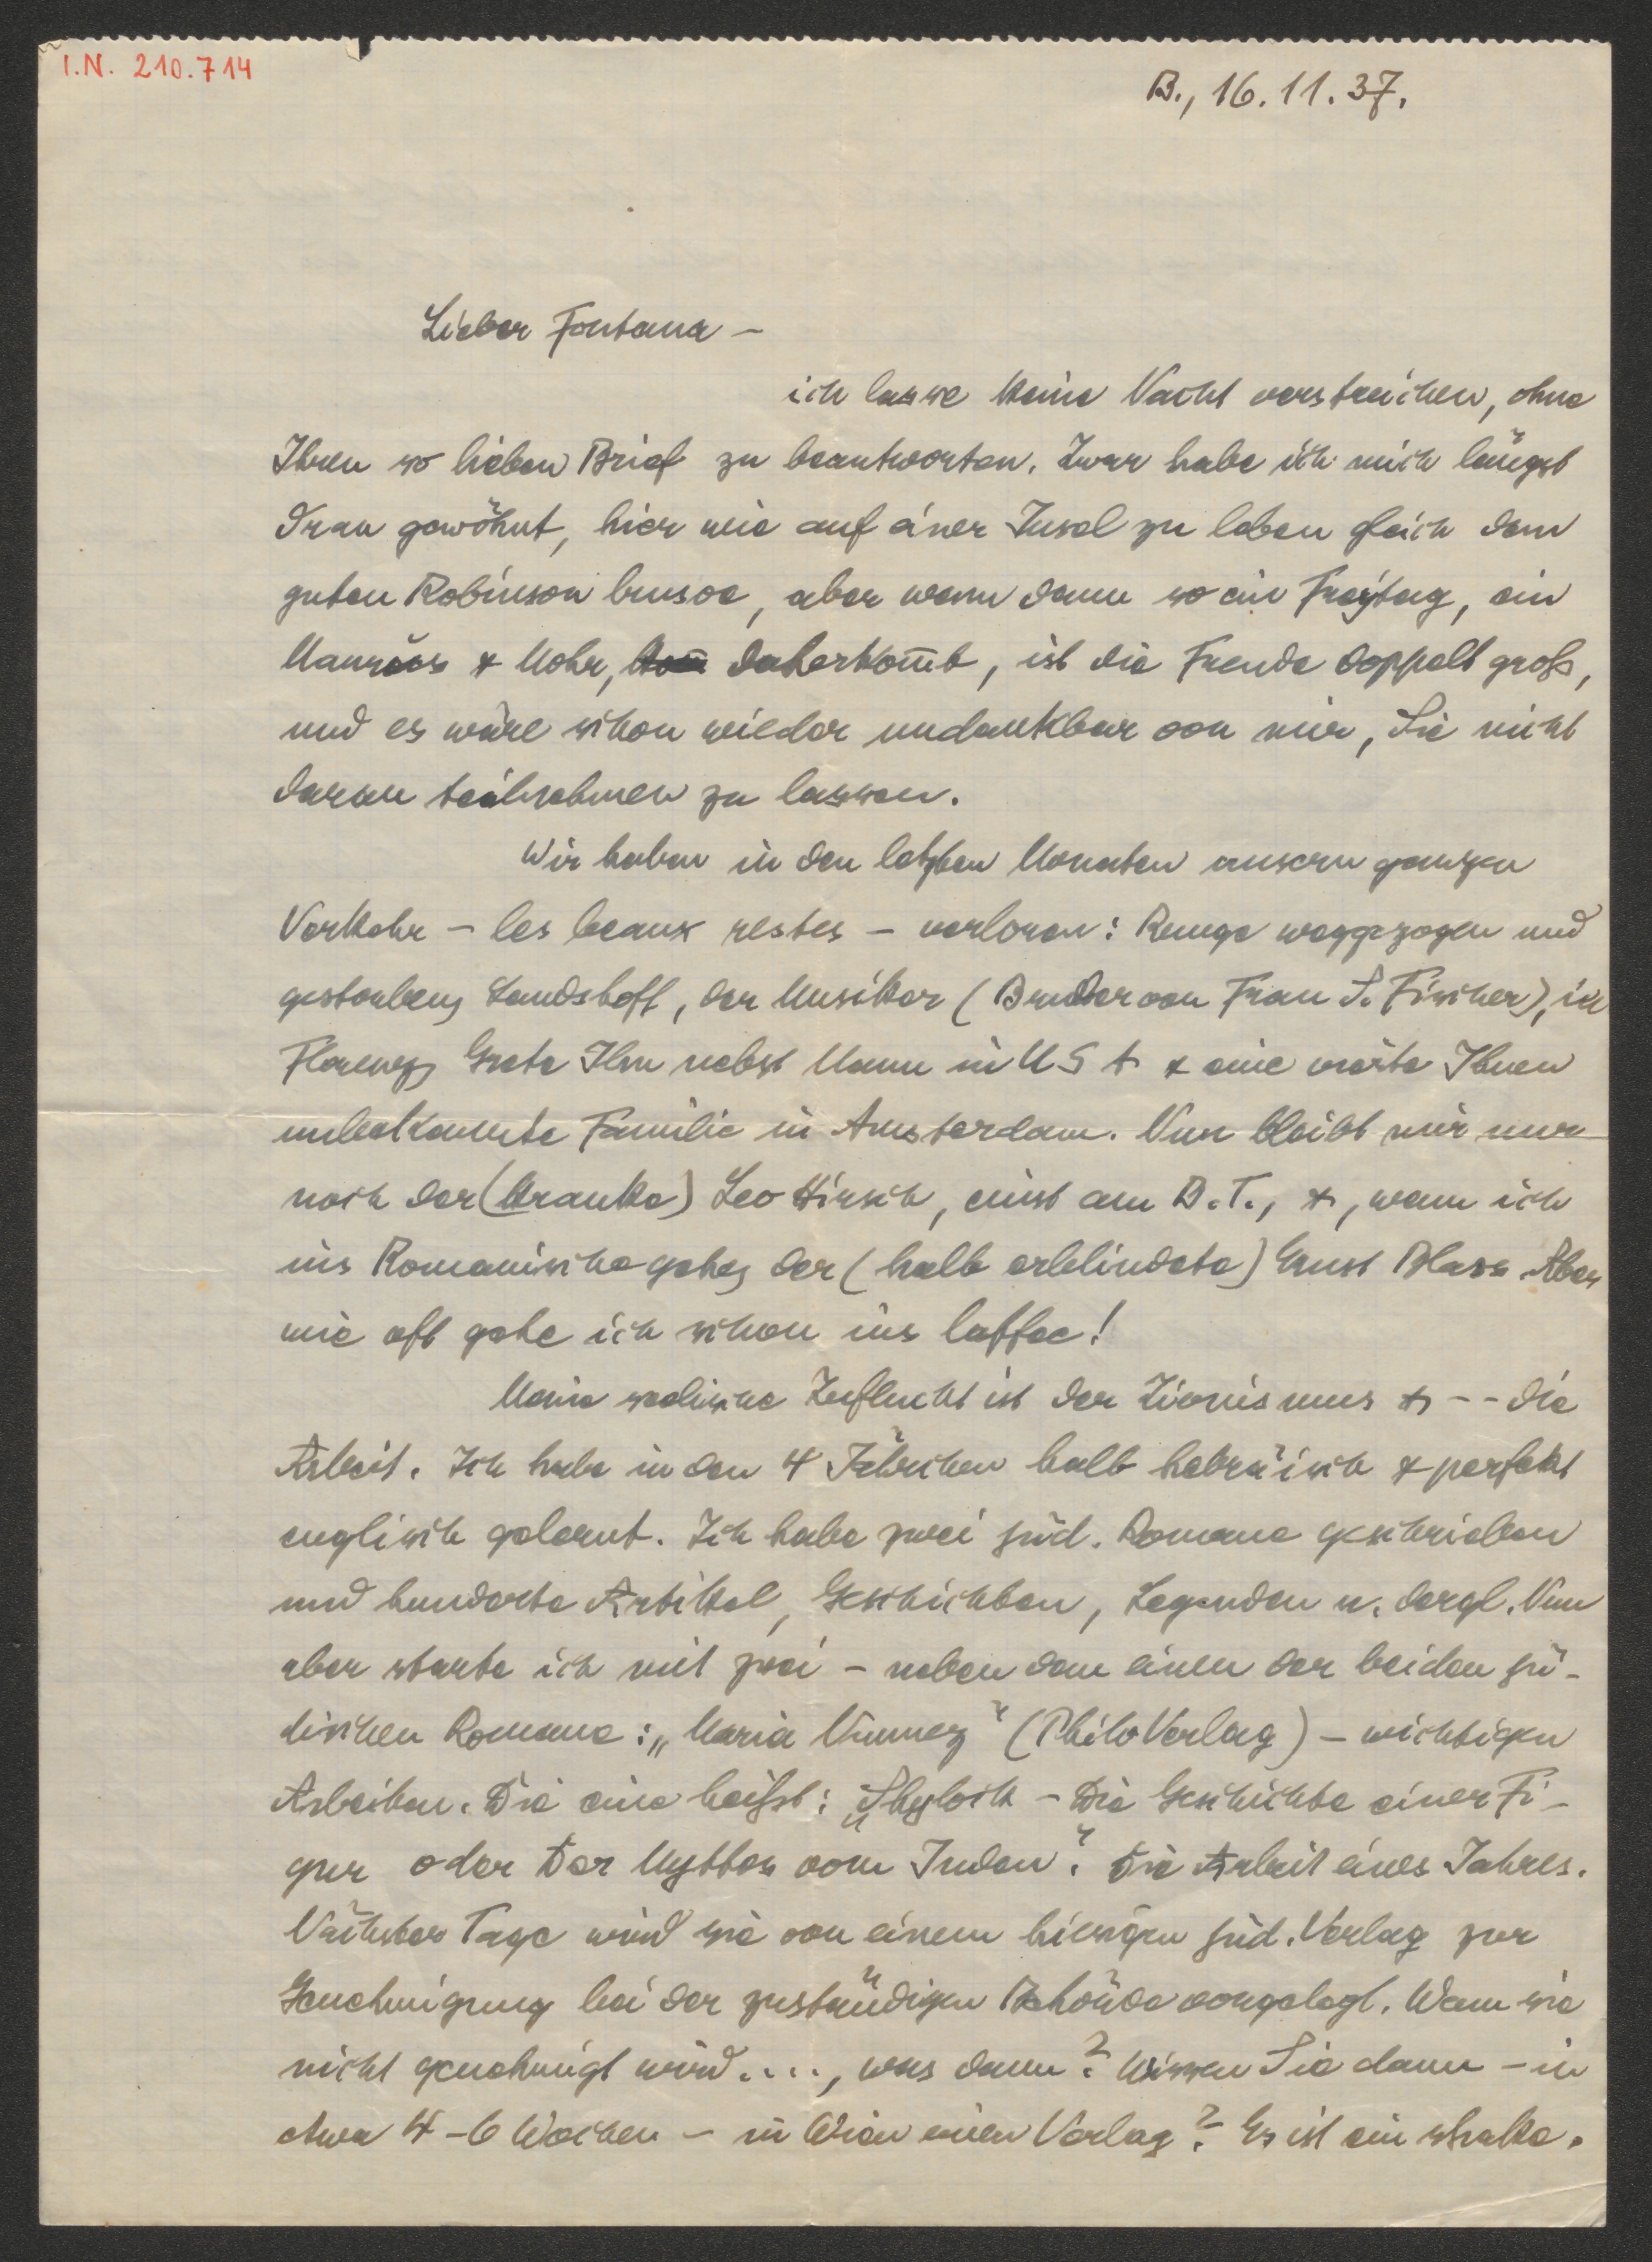 I.N. 210.714
B., 16.11.37.
Lieber Fontana –
ich lasse keine Nacht verstreichen, ohne
Ihren so lieben Brief zu beantworten. Zwar habe ich mich längst
dran gewöhnt, hier wie auf einer Insel zu leben gleich dem
guten Robinson Crusoe, aber wenn dann so ein Freitag, ein
& Mohr, daherkom̅t, ist die Freude doppelt groß,
und es wäre schon wieder undankbar von mir, Sie nicht
daran teilnehmen zu lassen.
Wir haben in den letzten Monaten unsern ganzen
Verkehr – les beaux restes – verloren: Runge weggezogen und
gestorben, Landshoff, der Musiker (Bruder von Frau S. Fischer), in
Florenz, Grete Ilm nebst Mann in USA & eine vierte Ihnen
unbekannte Familie in Amsterdam. Nun bleibt mir nur
noch der (kranke) Leo Hirsch, einst am B.T., &, wenn ich
ins Romanische gehe, der (halb erblindete) Ernst Blass. Aber
wie oft gehe ich schon ins Caffee!
Meine seelische Zuflucht ist der Zionismus & -- die
Arbeit. Ich habe in den 4 Jährchen halb hebräisch & perfekt
englisch gelernt. Ich habe zwei jüd. Romane geschrieben
und hunderte Artikel, Geschichten, Legenden u. dergl. Nun
aber starte ich mit zwei – neben dem einen der beiden jü-
dischen Romane: „Maria Nunnez" (Philo Verlag) – wichtigen
Arbeiten. Die eine heißt: „Shylock – Die Geschichte einer Fi-
gur oder Der Mythos vom Juden". Die Arbeit eines Jahres.
Nächster Tage wird sie von einem hiesigen jüd. Verlag zur
Genehmigung bei der zuständigen Behörde vorgelegt. Wenn sie
nicht genehmigt wird...., was dann? Wissen Sie dann – in
etwa 4–6 Wochen – in Wien einen Verlag? Es ist ein starke.